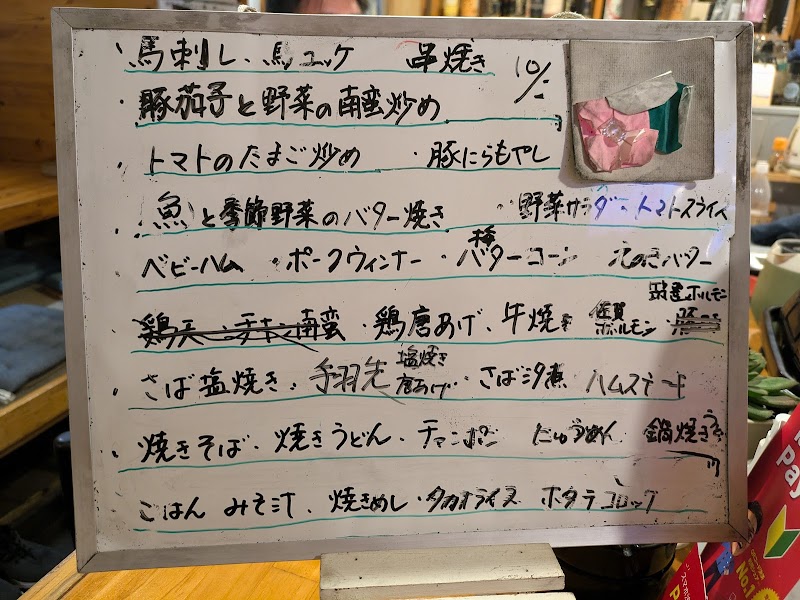 ・馬刺し、馬ユッケ 串焼き 10/-
・豚茄子と野菜の南蛮炒め
・トマトのたまご炒め ・豚にらもやし
・魚と季節野菜のバター焼き ・野菜サラダ・トマトスライス
ベビーハム ・ポークウィンナー ・バターコーン えのきバター
ホルモン
鶏天 チキン南蛮 ・鶏唐あげ、牛焼き 佐賀ホルモン
・さば塩焼き、手羽先 塩焼き 唐あげ ・さば汐煮 ハムステーキ
・焼きそば・焼きうどん・チャンポン にゅうめん 鍋焼きうどん
ごはん みそ汁、焼きめし・タカオライス ホタテコロッケ
Pay
No.1